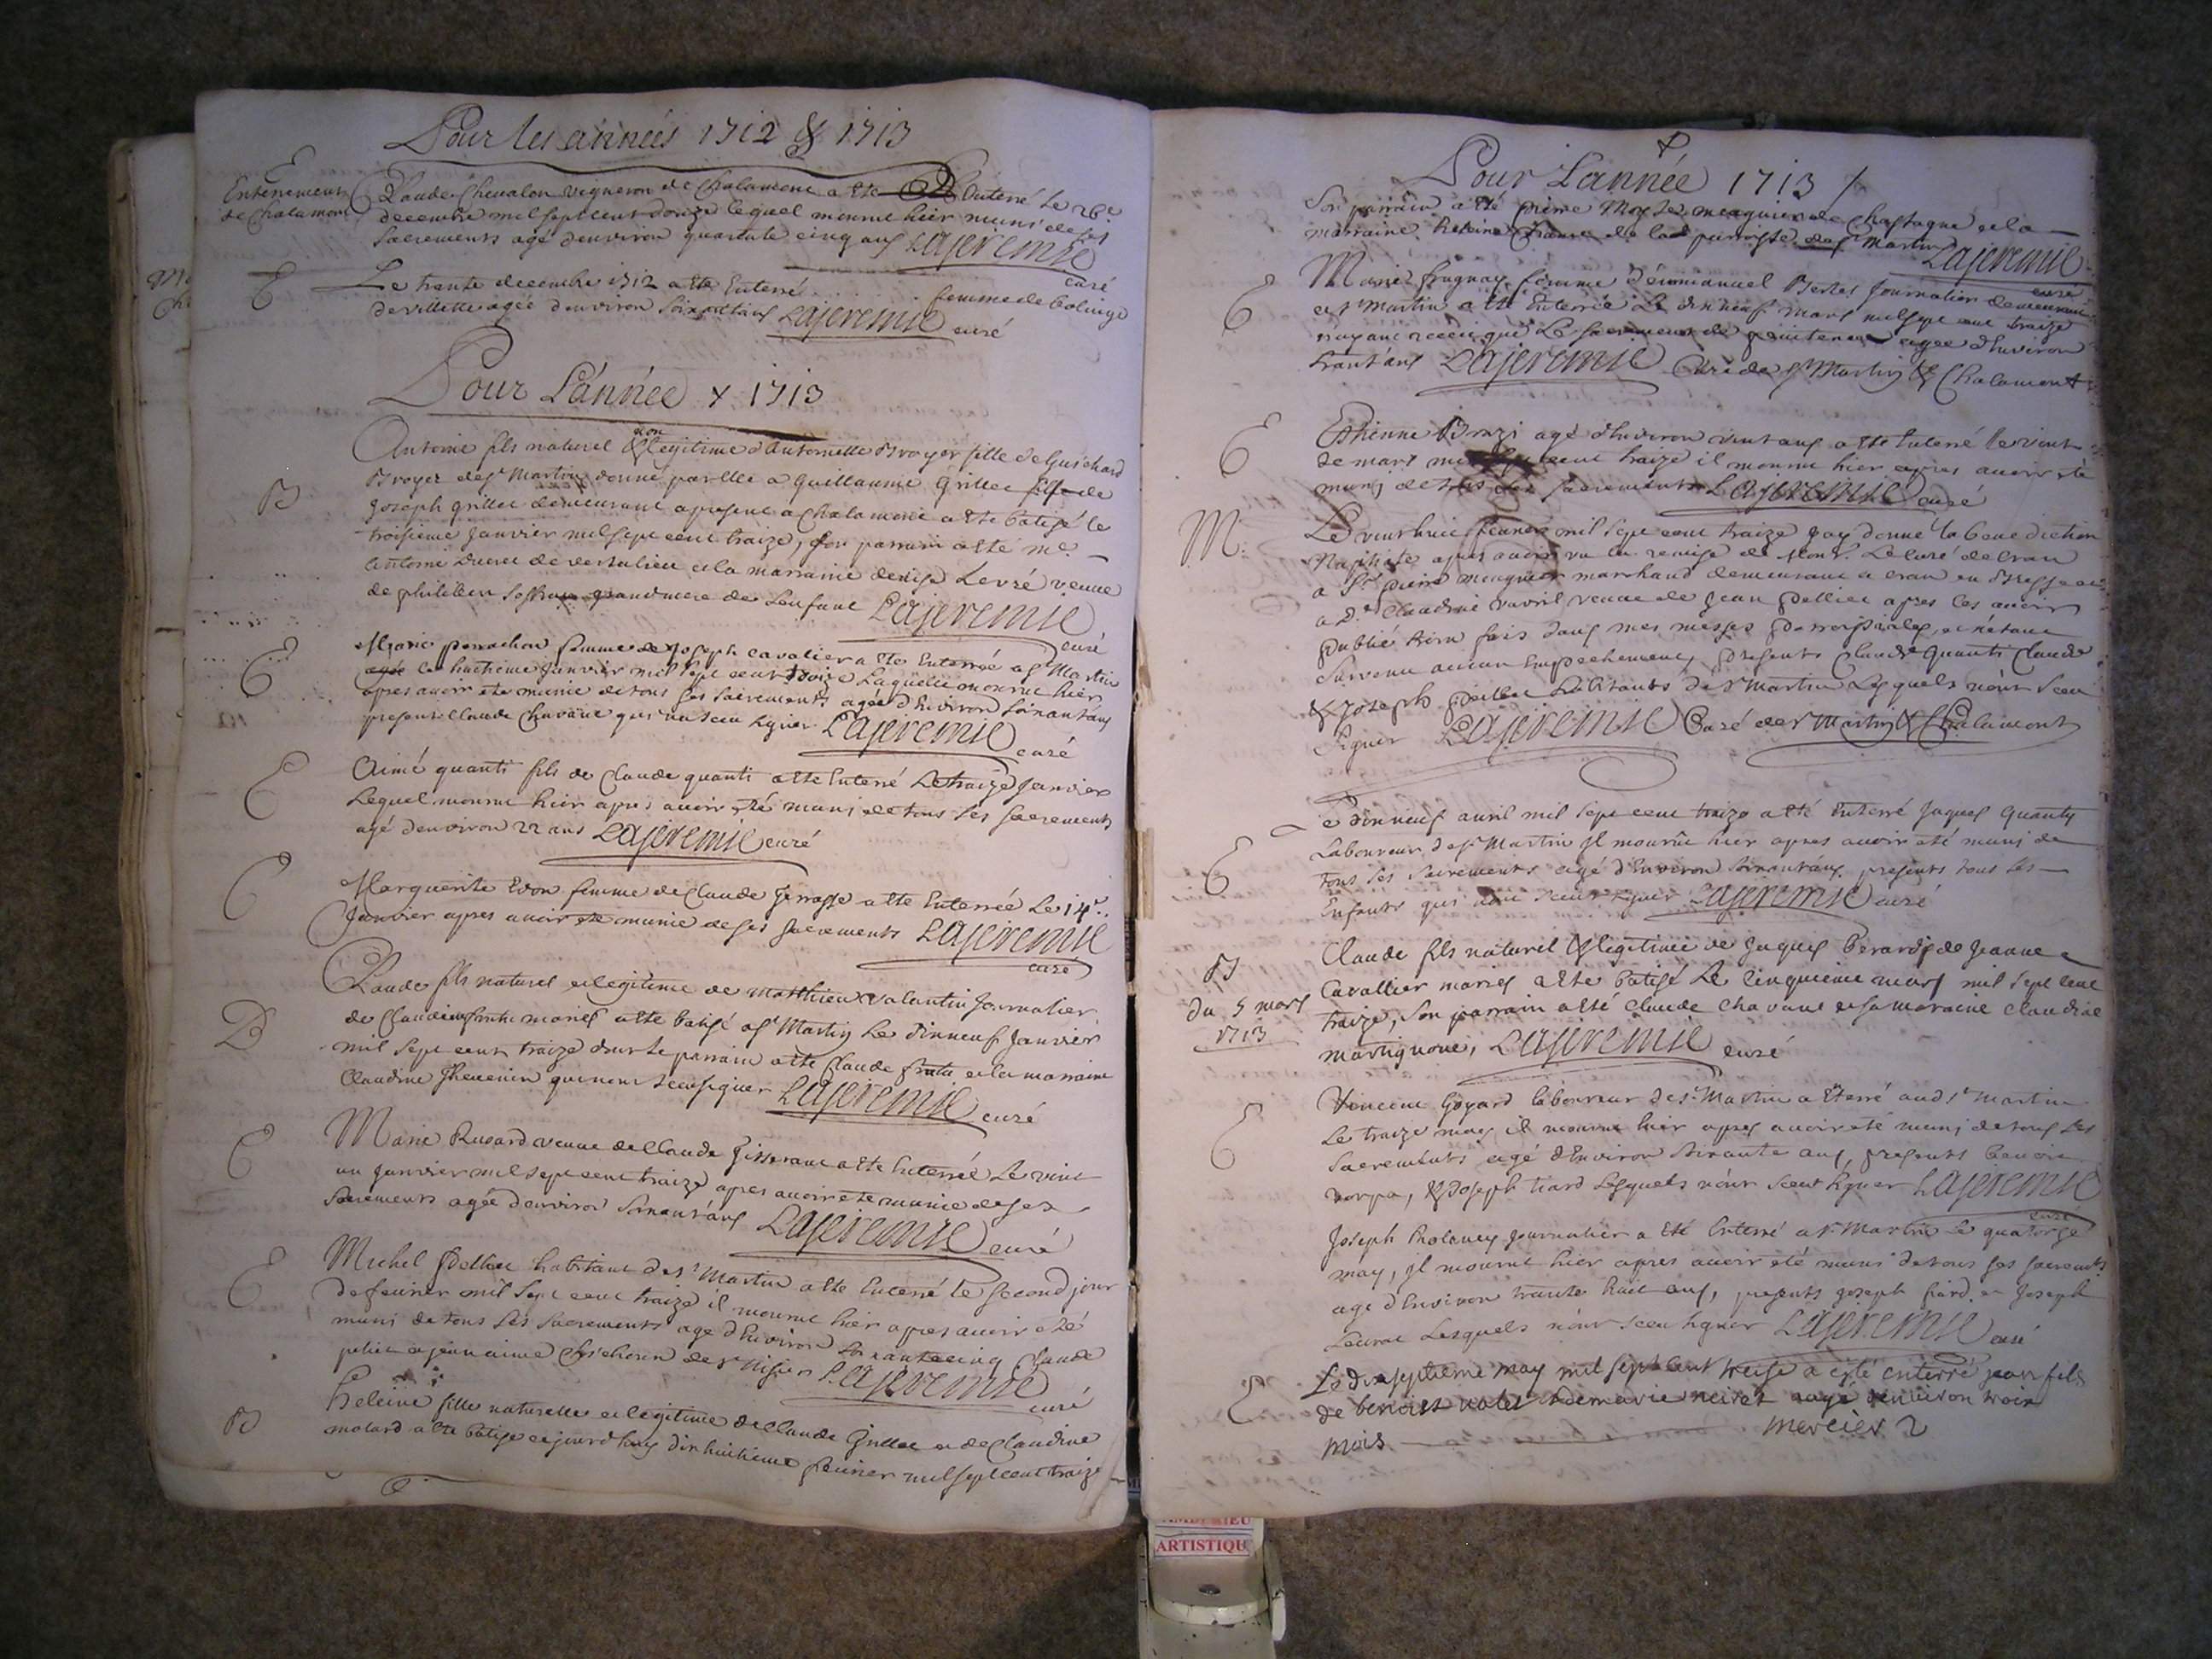 Pour les années 1712 & 1713
Enterrement
de Chalamont
E
Claude Chevalon vigneron de Chalamont a ete Enterré Le 26e
decembre mil sept cent douze lequel mourut hier muni de ses
Sacrements agé denviron quarante cinq ans Lajeremie
curé
E
Le trente decembre 1712 a ete Enterré femme de
de villette agée denviron Soixantans Lajeremie curé
Pour L'année + 1713
non
Antoine fils naturel & legitime d'Antoinette Broyer fille de Guichard
B
Broyer de st Martin donné par elle a Guillaume Grillet fils de
Joseph grillet demeurant apresent a Chalamont a ete batisé le
troisieme Janvier mil sept cent traize, son parrain a eté me
Antoine de versalieu et la marraine denise veuve
de philibert grandmere de Lenfant Lajeremie
curé
E
Marie perrachon femme de Joseph Cavalier a ete Enterrée a st Martin
le huitieme Janvier mil sept cent traize Laquelle mourut hier
apres avoir ete munie de tous ses sacrements agée d'Environ soixantans
present Claude Chavane qui n'a sceu signer Lajeremie curé
E
Aimé quanti fils de Claude quanti a ete Enterré Le traize Janvier
Lequel mourut hier apres avoir eté muni de tous ses sacrements
agé denviron 22 ans Lajeremie curé
E
Marguerite femme de Claude a ete Enterrée Le 14e
Janvier apres avoir ete munie de ses sacrements Lajeremie
curé
Claude fils naturel et legitime de Matthieu Valantin Journalier
B
de Claudine mariés a ete batisé a st Martin Le dixneuf Janvier
mil sept cent traize dont le parrain a ete Claude et la marraine
Claudine Thevenin qui n'ont sceu signer Lajeremie curé
E
Marie veuve de Claude Tisserant a ete Enterrée Le vint
un Janvier mil sept cent traize apres avoir ete munie de ses
sacrements agée d'environ soixantans Lajeremie curé
E
Michel pellet habitant de st Martin a ete Enterré le second jour
de fevrier mil sept cent traize il mourut hier apres avoir eté
muni de tous ses sacrements agé d'Environ soixantecinq Claude
pellet et jean aimé de st Nisier Lajeremie
curé
B
heleine fille naturelle et legitime de Claude Grillet et de Claudine
molard a ete batisée cejourdhuy dixhuitieme fevrier mil sept cent traize
Pour L'année 1713
Son parrain a eté pierre meugnier de Chastagne et la
marraine heleine de lad parroisse de st Martin
Lajeremie
curé
E
Marie frugnay femme d'emmanuel Journalier demeurant
a st Martin a ete Enterrée Le dixneuf mars mil sept cent traize
nayant receu que Le sacrement de penitence agée d'Environ
trant'ans Lajeremie Curé de st Martin & Chalamont
E
Ethienne agé d'Environ vint ans a ete Enterré le vint
de mars mil sept cent traize il mourut hier apres avoir ete
muni de tous ses sacrements Lajeremie curé
M.
Le vint huit fevrier mil sept cent traize Jay donné la benediction
Nuptiale apres avoir vu la remise de monsr Le curé de Cran
a Sr pierre meugnier marchand demeurant a Cran en Bresse et
a De Claudine veuve de Jean pellier apres les avoir
publié trois fois dans mes messes parroissiales, et n'etant
Survenu aucun Empechement, presents Claude quanti Claude
& Joseph habitants de st Martin Lesquels n'ont sceu
signer Lajeremie Curé de st Martin & Chalamont
Le dixneuf avril mil sept cent traize a eté Enterré Jaques Quanty
E
Laboureur de st Martin Il mourut hier apres avoir eté muni de
tous ses sacrements agé d'Environ soixantans, presents tous ses
Enfants qui n'ont sceu signer Lajeremie curé
B
du 5 mars
1713
Claude fils naturel & legitime de Jaques berard & de Jeanne
Cavallier mariés a ete batisé Le cinquieme mars mil sept cent
traize, Son parrain a eté Claude Chavane et sa maraine Claudine
martignone, Lajeremie curé
E
Vincent Goyard laboureur de st Martin a Eterré aud st Martin
Le traize may il mourut hier apres avoir eté muni de tous ses
sacrements agé d'Environ soixante ans, presents benoit
& Joseph tiard Lesquels n'ont sceu signer Lajeremie
curé
Joseph Journalier a Eté Enterré a st Martin le quatorze
may, Il mourut hier apres avoir eté muni de tous ses sacrements
agé d'Environ trante huit ans, presents Joseph et Joseph
Lesquels n'ont sceu signer Lajeremie curé
E
Le dixseptieme may mil sept cent treise a esté enterré jean fils
de benoist et de marie agé denviron trois
mois mercier
AMBERIEU
ARTISTIQU